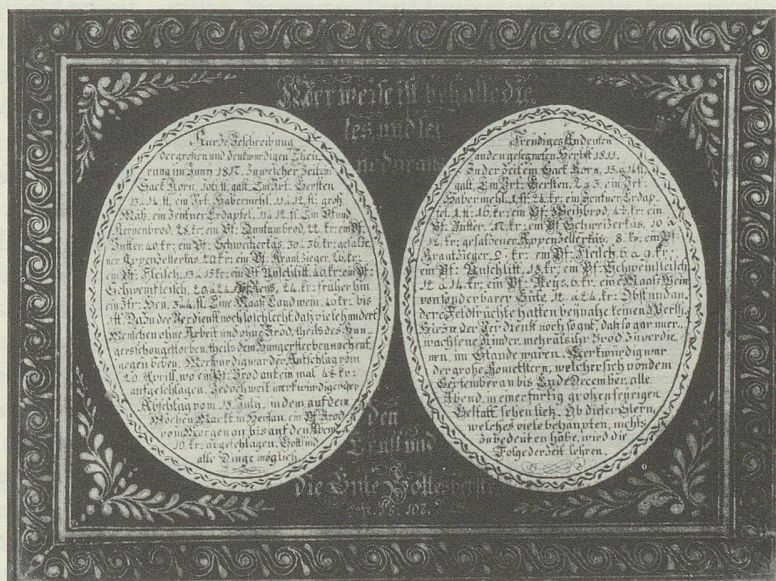 Wer weise ist behalte die
ses und ler
Kurze Beschreibung
der großen und denkwürdigen Theü
rung im Juny 1817. Zu welcher Zeit ein
Sack Korn, 106 fl. galt. Ein Zrt. Gersten
13 a 14 fl. ein Zrt. Habermehl, 11 a 12 fl: groß
Mäh, ein Zentner Erdäpfel, 11 a 12 fl. Ein Pfund
Kernenbrod, 28 kr: ein Pf. Quntumbrod, 22 kr: ein Pf:
Butter, 40 kr: ein Pf: Schweizerkäs, 30 a 36 kr: gesalze
ner Appenzellerkäs, 20 kr: ein Pf. Krautzieger, 26 kr:
ein Pf: Fleisch, 13 a 15 kr: ein Pf Unschlitt, 40 kr: ein Pf:
Schweinfleisch, 20 a 24 Pf Reys, 24 kr: früher hin
ein Ztr: Heu, 3 a 4 fl. Eine Maaß Landwein, 40 kr: bis
1 fl. Da zu der Verdienst noch so schlecht daß viele hundert
Menschen ohne Arbeit und ohne Brod, theils des Hun
gers schon gestorben, theils dem Hungersterben noch ent
gegen beben. Merkwürdig war der Aufschlag vom
20. Aprill, wo ein Pf: Brod auf ein mal 48 kr:
aufgeschlagen. Jedoch weit merkwürdiger der
Abschlag vom 15 July, in dem auf dem
Wochen Markt in Herisau, ein Pf. Brod
vom Morgen an bis auf den Abend
10 kr: abgeschlagen. Gott sind
alle Dinge möglich.
Freudiges Andenken
an den gesegneten Herbst 1811.
Zu der Zeit ein Sack Korn, 13 a 14 fl.
galt. Ein Zrt. Gersten, 2 a 3. ein Zrt.
Habermehl, 1 fl: 24 kr: ein Zentner Erdäp
fel, 1 fl: 16 kr: ein Pf: Weißbrod, 4½ kr: ein
Pf. Butter, 17 kr: ein Pf Schweizerkäs, 10 a
12 kr: gesalzener Appenzellerkäs, 8 kr: ein Pf
Krautzieger, 9 kr: ein Pf Fleisch, 6 a 9 kr:
ein Pf: Unschlitt, 18 kr: ein Pf: Schweinfleisch
12 a 14 kr: ein Pf: Reys, 6 kr: eine Maaß Wein
von sonderbarer Güte, 12 a 24 kr: Obst und an
dere Feldfrüchte hatten bey nahe keinen Werth.
Hierzu der Verdienst noch so gut, daß so gar uner
wachsene Kinder, mehr als ihr Brod zu verdie
nen, im Stande waren. Merkwürdig war
der große Cometstern, welcher sich von dem
September an bis Ende December, alle
Abend, in einer furtig großen feyrigen
Gestalt sehen ließ. Ob dieser Stern,
welches viele behaupten, nichts
zu bedeuten habe, wird die
Folge der Zeit lehren.
den
Ernst und
die Güte Gottes
Ps. 107.